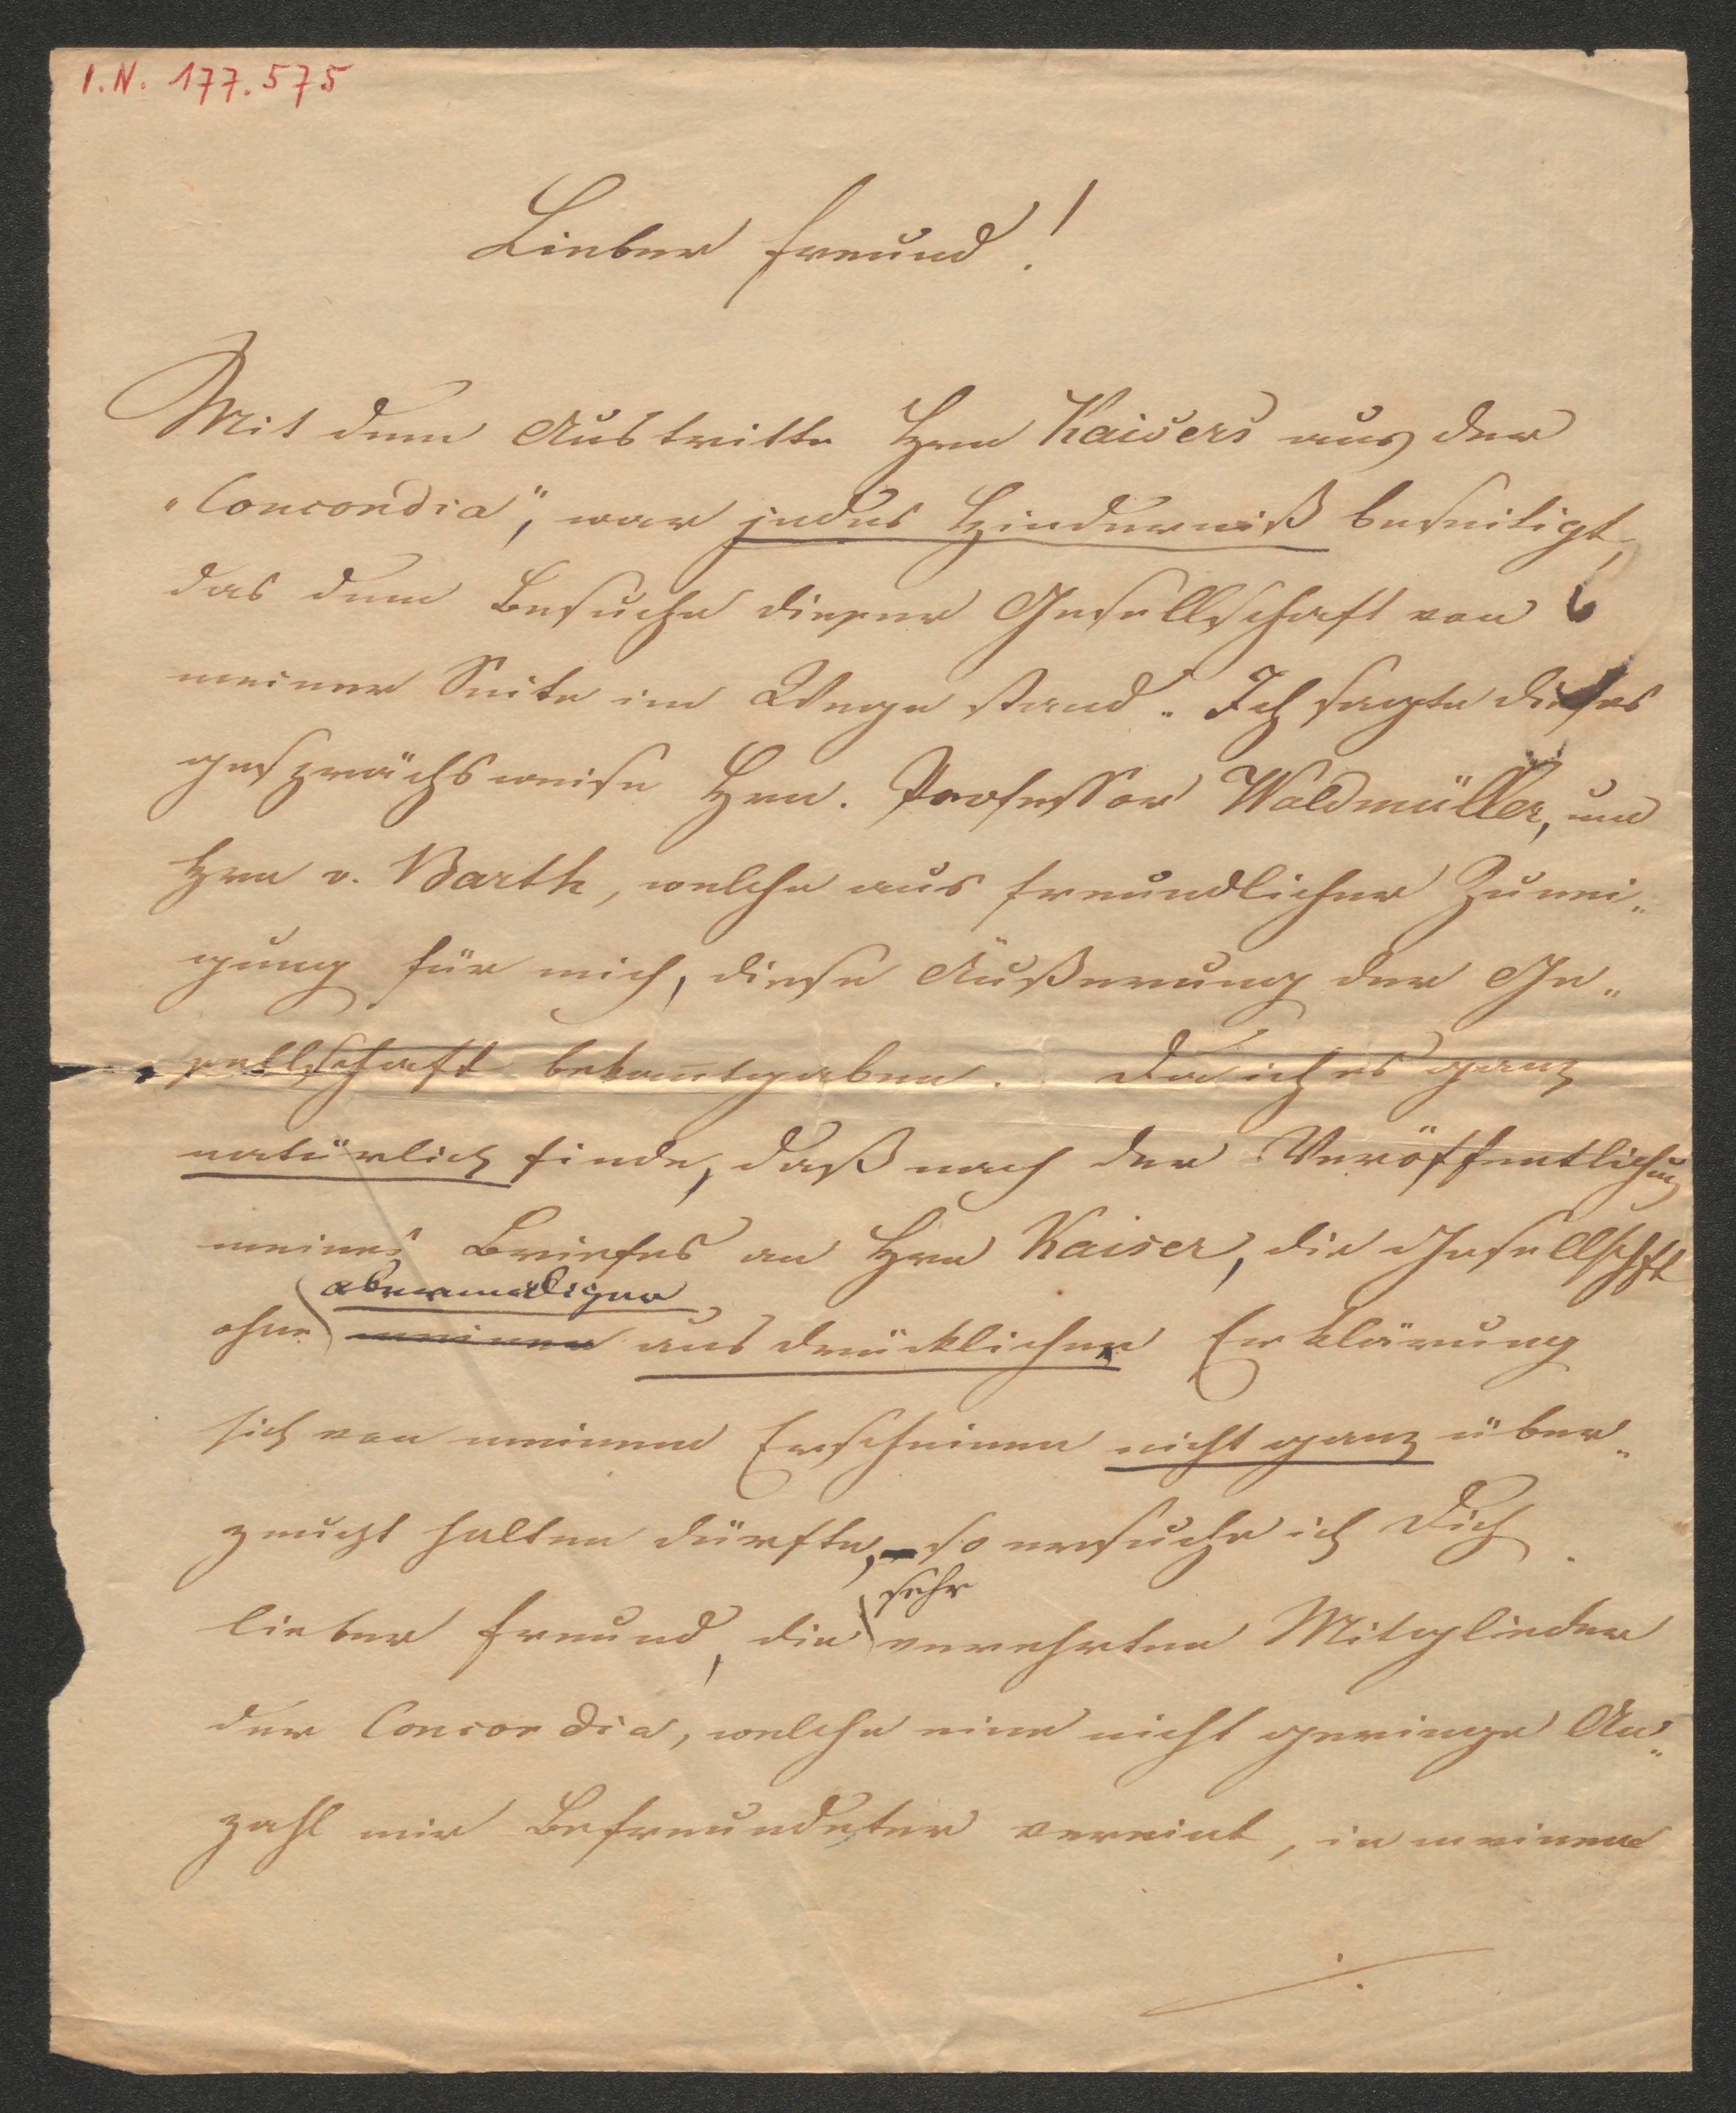 I.N. 177.575
Lieber Freund!
Mit dem Austritte Hrn Kaisers aus der
„Concordia", war jedes Hinderniß beseitigt,
das dem Besuche dieser Gesellschaft von
meiner Seite im Wege stand. Ich sagte dieses
gesprächsweise Hrn. Professor Waldmüller, und
Hrn v. Barth, welche aus freundlicher Zunei„
gung für mich, diese Äußerung der Ge„
sellschaft bekanntgaben. Da ich es ganz
natürlich finde, daß nach der Veröffentlichung
meines Briefes an Hrn Kaiser, die Gesellschft
abermaliger
ohne meiner ausdrücklichen Erklärung
sich von meinem Erscheinen nicht ganz über„
zeugt halten dürfte, – so ersuche ich Dich
sehr
lieber Freund, die verehrten Mitglieder
der Concordia, welche eine nicht geringe An„
zahl mir Befreundeter vereint, in meinem
./.